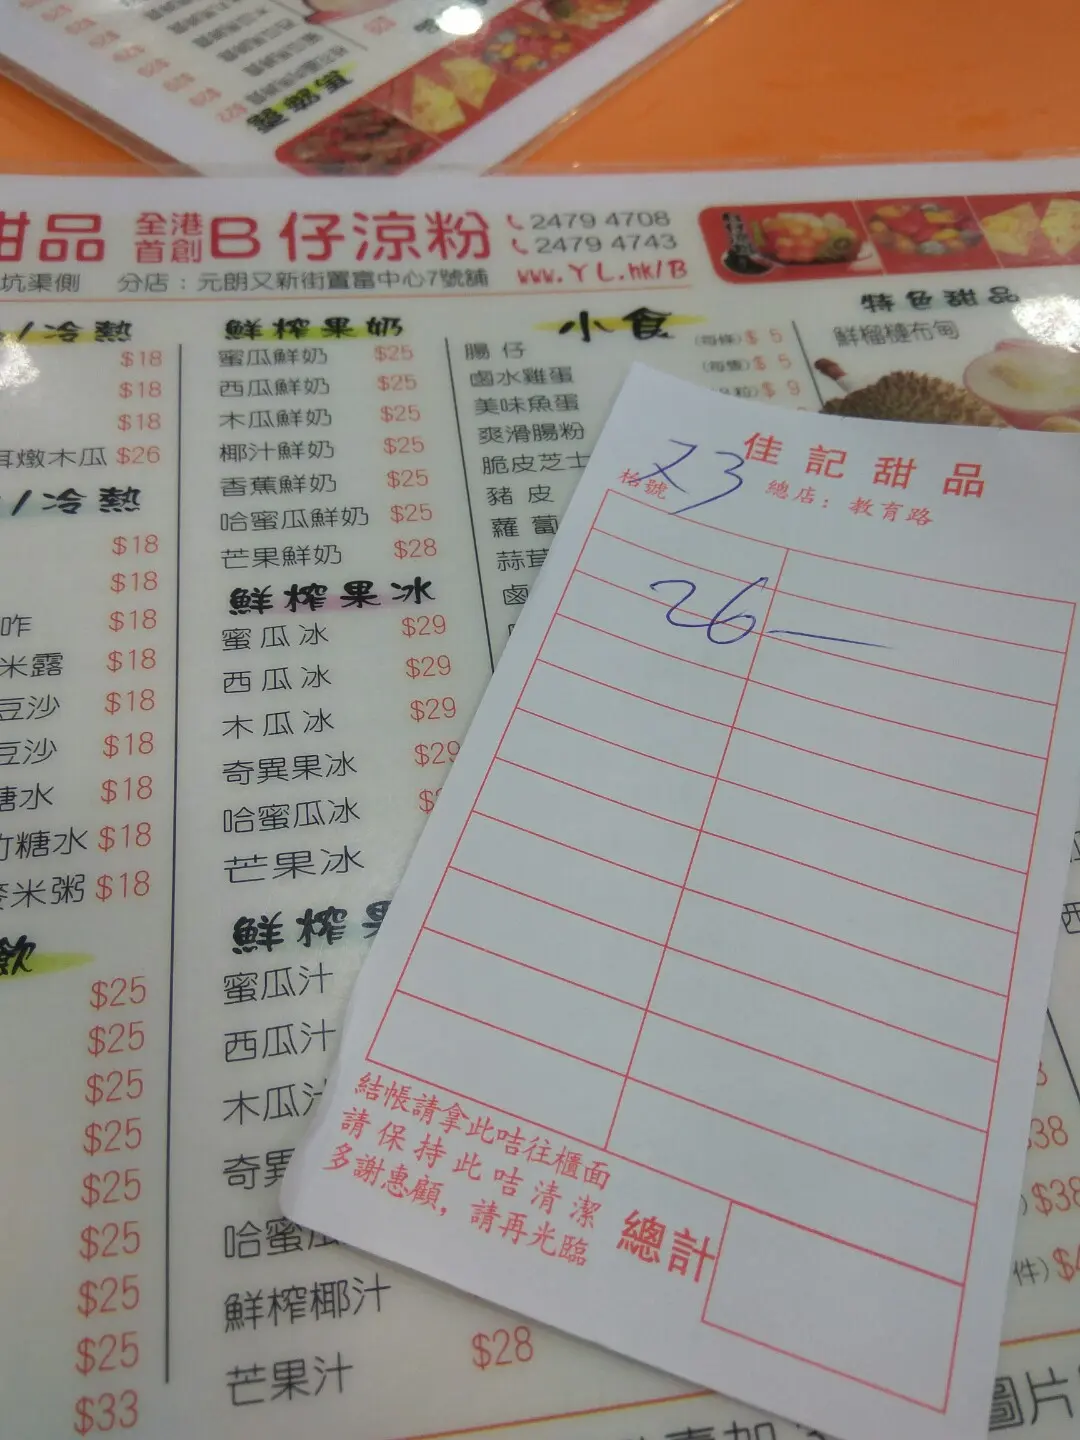 甜品 全港首創 B仔涼粉 2479 4708
2479 4743
坑渠側 分店：元朗又新街置富中心7號舖 www.YL.hk/B
/冷熱
$18
$18
$18
耳燉木瓜 $26
/冷熱
$18
$18
咋 $18
米露 $18
豆沙 $18
豆沙 $18
糖水 $18
竹糖水 $18
麥米粥 $18
飲
$25
$25
$25
$25
$25
$25
$25
$25
$33
鮮榨果奶
蜜瓜鮮奶 $25
西瓜鮮奶 $25
木瓜鮮奶 $25
椰汁鮮奶 $25
香蕉鮮奶 $25
哈蜜瓜鮮奶 $25
芒果鮮奶 $28
鮮榨果冰
蜜瓜冰 $29
西瓜冰 $29
木瓜冰 $29
奇異果冰 $29
哈蜜瓜冰
芒果冰
鮮榨果
蜜瓜汁
西瓜汁
木瓜汁
奇異
哈蜜瓜
鮮榨椰汁
芒果汁 $28
小食
腸仔 (每條) $ 5
鹵水雞蛋 (每隻) $ 5
美味魚蛋 粒) $ 9
爽滑腸粉
脆皮芝士
豬皮
蘿蔔
蒜茸
鹵
特色甜品
鮮榴槤布甸
佳記甜品
總店：教育路
枱號 23
26—
結帳請拿此咭往櫃面
請保持此咭清潔
多謝惠顧，請再光臨
總計
$38
件)
圖片